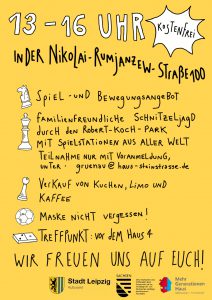 13 - 16 UHR
KOSTENFREI
IN DER NIKOLAI-RUMJANZEW-STRAßE 100
SPIEL- UND BEWEGUNGSANGEBOT
FAMILIENFREUNDLICHE SCHNITZELJAGD
DURCH DEN ROBERT-KOCH-PARK
MIT SPIELSTATIONEN AUS ALLER WELT
TEILNAHME NUR MIT VORANMELDUNG,
UNTER: gruenau@haus-steinstrasse.de
VERKAUF VON KUCHEN, LIMO UND
KAFFEE
MASKE NICHT VERGESSEN!
TREFFPUNKT: VOR DEM HAUS 4
WIR FREUEN UNS AUF EUCH!
Stadt Leipzig
Kulturamt
SACHSEN
Mehr
Generationen
Haus